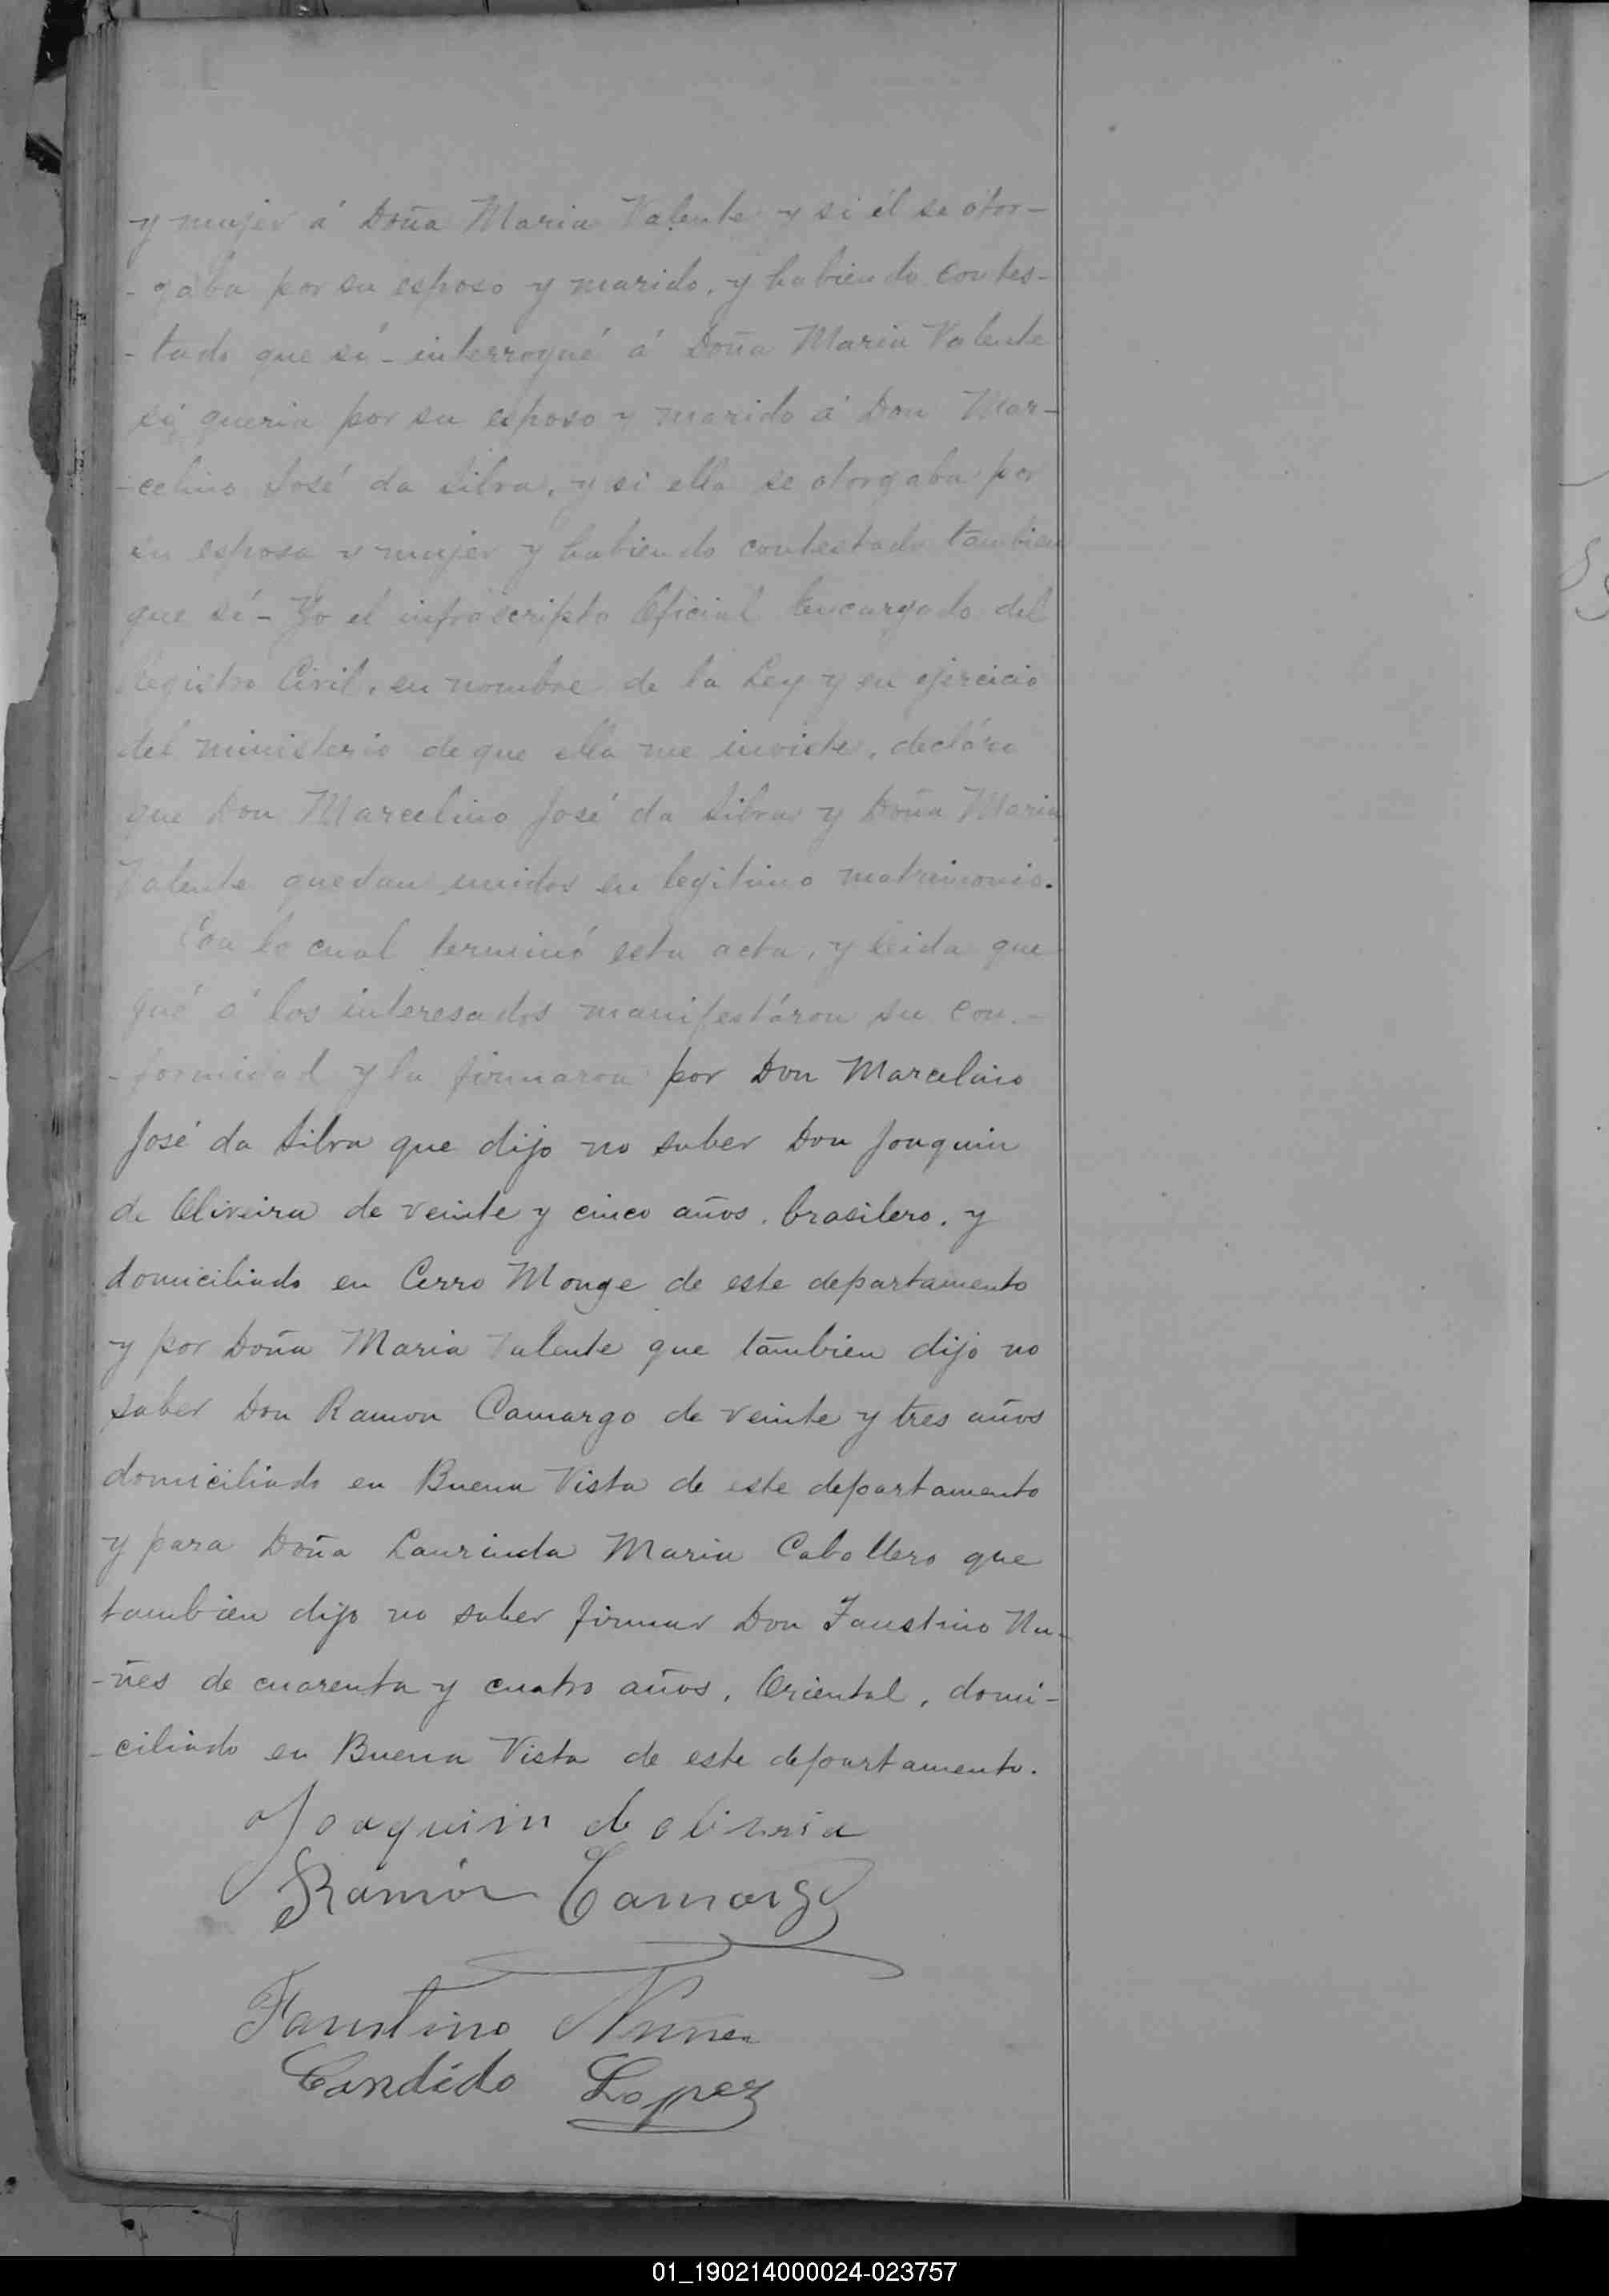 y mujer á Doña Maria Valente y si él se otor-
-gaba por su esposo y marido, y habiendo contes-
-tado que sí - interrogué á Doña Maria Valente
si queria por su esposo y marido á Don Mar-
-celino José da Silva, y si ella se otorgaba por
su esposa y mujer y habiendo contestado tambien
que sí - Yo el infrascripto Oficial Encargado del
Registro Civil, en nombre de la Ley y en ejercicio
del ministerio de que ella me inviste, decláro
que Don Marcelino José da Silva y Doña Maria
Valente quedan unidos en legitimo matrimonio.
Con lo cual terminó esta acta, y leida que
fué á los interesados manifestáron su con-
-formidad y la firmaron por Don Marcelino
José da Silva que dijo no saber Don Joaquin
de Oliveira de veinte y cinco años, brasilero, y
domiciliado en Cerro Monge de este departamento
y por Doña Maria Valente que tambien dijo no
saber Don Ramon Camargo de veinte y tres años
domiciliado en Buena Vista de este departamento
y para Doña Laurinda Maria Caballero que
tambien dijo no saber firmar Don Faustino Nu-
-ñes de cuarenta y cuatro años, Oriental, domi-
-ciliado en Buena Vista de este departamento.
Joaquin de
Ramón Camargo
Faustino Nuñes
Candido Lopez
01_190214000024-023757